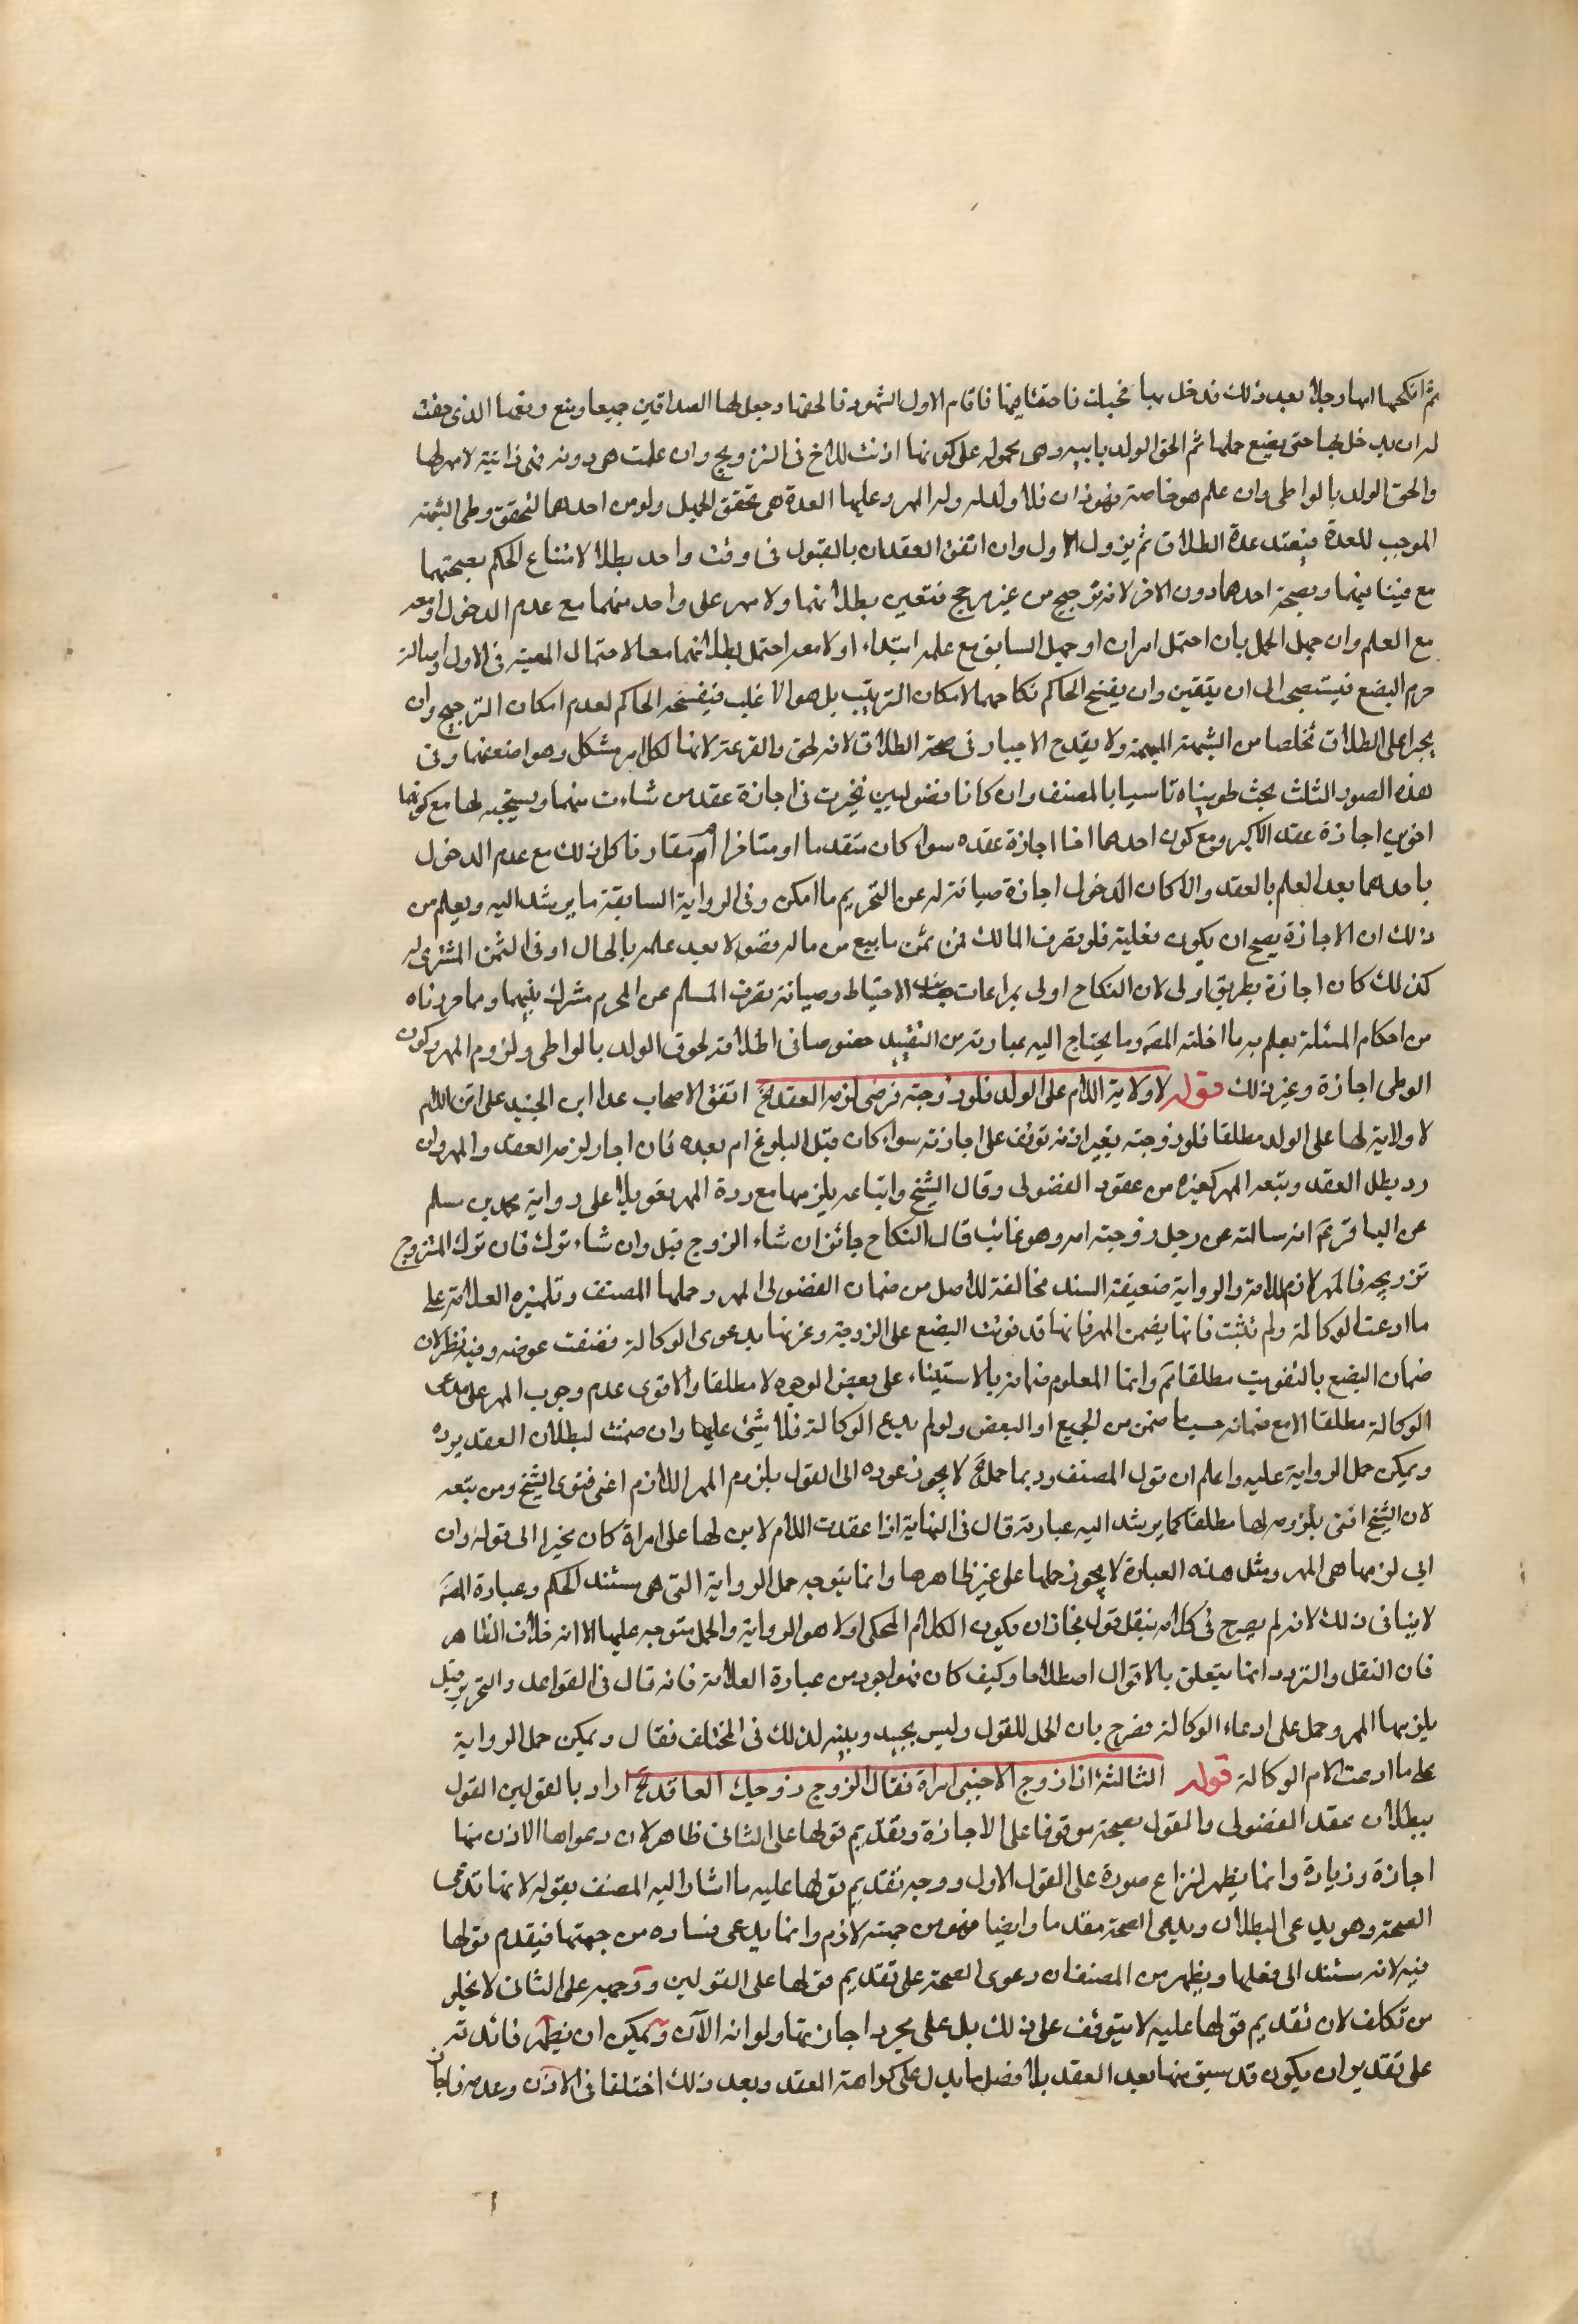 ثم انكحها امها رجلا بعد ذلك فدخل بها فحبلت فاحتقا فيها فاقام الاول الشهود فالحقها وجعل لها الصداقين جميعا ومنع زوجها الذي حقت
له ان يدخل بها حتى يضع حملها ثم الحق الولد بابيه وهي محموله على كونها اذنت للاخ في التزويج وان علمت هي دونه فهي زانية لا مهر لها
والحق الولد بالواطي وان علم هو خاصة فهو زان فلا ولد له ولها المهر وعليها العدة هي تحقق الجهل ولو من احدهما لتحقق وطي الشبهة
الموجب للعدة فتعتد عدة الطلاق ثم يزول الاول وان اتفق العقدان بالقبول في وقت واحد بطلا لامتناع الحكم بصحتهما
مع فينافيهما وبصحة احدهما دون الاخر لانه ترجيح من غير مرجح فتعين بطلانهما ولا مهر على واحد منهما مع عدم الدخول او معه
مع العلم وان جهل الحمل بان احتمل امران او جهل السابق مع علمه ابتداء او لا معه احتمل بطلانهما معا لاحتمال المعية في الاول واصالة
حرم البضع فيستصحب الى ان يتقين وان يفسخ الحاكم نكاحهما لامكان الترتيب بل هو الاغلب فيفسخه الحاكم لعدم امكان الترجيح وان
يجبرا على الطلاق تخلصا من الشبهة المبهمة ولا يقدح الاجبار في صحة الطلاق لانه لحق والقرعة لانها لكل امر مشكل وهو اضعفها وفي
هذه الصور الثلث بحث طويناه تاسيا بالمصنف وان كانا فضوليين تخيرت في اجازة عقد من شاءت منهما ويستحب لها مع كونهما
اخوين اجازة عقد الاكبر ومع كون احدهما اخا اجازة عقده سواء كان متقدما او متاخرا ام مقارنا كل ذلك مع عدم الدخول
باحدهما بعد العلم بالعقد والا كان الدخول اجازة صيانة له عن التحريم ما امكن وفي الرواية السابقة ما يرشد اليه ويعلم من
ذلك ان الاجازة يصح ان يكون فعلية فلو تصرف المالك في ثمن ما بيع من ماله فضولا بعد علمه بالحال او في الثمن المشترى له
كذلك كان اجازة بطريق اولى لان النكاح اولى بمراعات الاحتياط وصيانة تصرف المسلم عن المحرم مشرك بينهما ومما حررناه
من احكام المسئلة يعلم به ما اخلته المصَ وما يحتاج اليه عبارته من التقييد خصوصا في اطلاقه لحوق الولد بالواطي ولزوم المهر وكون
الوطي اجازة وغير ذلك قوله لا ولاية للام على الولد فلو زوجته فرضي لزمه العقد الخ اتفق الاصحاب عدا ابن الجنيد على ان الام
لا ولاية لها على الولد مطلقا فلو زوجته بغير اذنه توقف على اجازته سواء كان قبل البلوغ ام بعده فان اجاز لزمه العقد والمهر وان
رد بطل العقد وتبعه المهر كغيره من عقود الفضولي وقال الشيخ واتباعه يلزمها مع رده المهر تعويلا على رواية محمد بن مسلم
عن الباقر ع انه سالته عن رجل زوجته امه وهو غائب قال النكاح جائز ان شاء الزوج قبل وان شاء ترك فان ترك المتزوج
تزويجه فالمهر لازم لامه والرواية ضعيفة السند مخالفة للاصل من ضمان الفضولي المهر وحملها المصنف وتلميذه العلامة على
ما ادعت الوكالة ولم تثبت فانها يضمن المهر فانها قد فوتت البضع على الزوجة وغرتها بدعوى الوكالة فضمنت عوضه وفيه نظر لان
ضمان البضع بالتفويت مطلقا ثم وانما المعلوم ضمانه بالاستيفاء على بعض الوجوه لا مطلقا والاقوى عدم وجوب المهر على مدعى
الوكالة مطلقا الا مع ضمانه حسبما ضمن من الجميع او البعض ولو لم يدع الوكالة فلا شئ عليها وان ضمنت لبطلان العقد برده
ويمكن حمل الرواية عليه واعلم ان قول المصنف وربما حمل الخ لا يجوز عوده الى القول بلزوم المهر اللازم اعني فتوى الشيخ ومن تبعه
لان الشيخ افتى بلزومه لها مطلقا كما يرشد اليه عبارته قال في النهاية اذا عقدت الام لابن لها على امراة كان مخيرا الى قوله وان
ابى لزمها هي المهر ومثل هذه العبارة لا يجوز حملها على غير ظاهرها وانما يتوجه حمل الرواية التي هي مستند الحكم وعبارة المصَ
لا ينافي ذلك لانه لم يصرح في كلامه بنقل قول فجاز ان يكون الكلام المحكي اولا هو الرواية والحمل متوجه عليها الا انه خلاف الظاهر
فان النقل والتردد انما يتعلق بالاقوال اصطلاحا وكيف كان فهو اجود من عبارة العلامة فانه قال في القواعد والتحرير قيل
يلزمها المهر وحمل على ادعاء الوكالة فصرح بان الحمل للقول وليس بجيد وبينه لذلك في المختلف فقال ويمكن حمل الرواية
على ما ادعت الام الوكالة قوله الثالثة اذا زوج الاجنبي امراة فقال الزوج زوجك العاقد الخ اراد بالقولين القول
ببطلان عقد الفضولي والقول بصحته موقوفا على الاجازة وتقديم قولها على الثاني ظاهر لان دعواها الاذن منها
اجازة وزيادة وانما يظهر لنزاع صورة على القول الاول ووجه تقديم قولها عليه ما اشار اليه المصنف بقوله لانها تدعى
الصحة وهو يدعى البطلان ويدعى الصحة مقدما وايضا فهو من جهته لازم وانما يدعى فساده من جهتها فيقدم قولها
فيه لانه مستند الى فعلها ويظهر من المصنف ان دعوى الصحة على تقديم قولها على القولين ووجهه على الثاني لا يخلو
من تكلف لان تقديم قولها عليه لا يتوقف على ذلك بل على مجرد اجازتها ولو انه الآن ويمكن ان يظهر فائدته
على تقدير ان يكون قد سبق منها بعد العقد بلا فصل ما يدل على كراهة العقد وبعد ذلك اختلفا في الاذن وعدمه فان